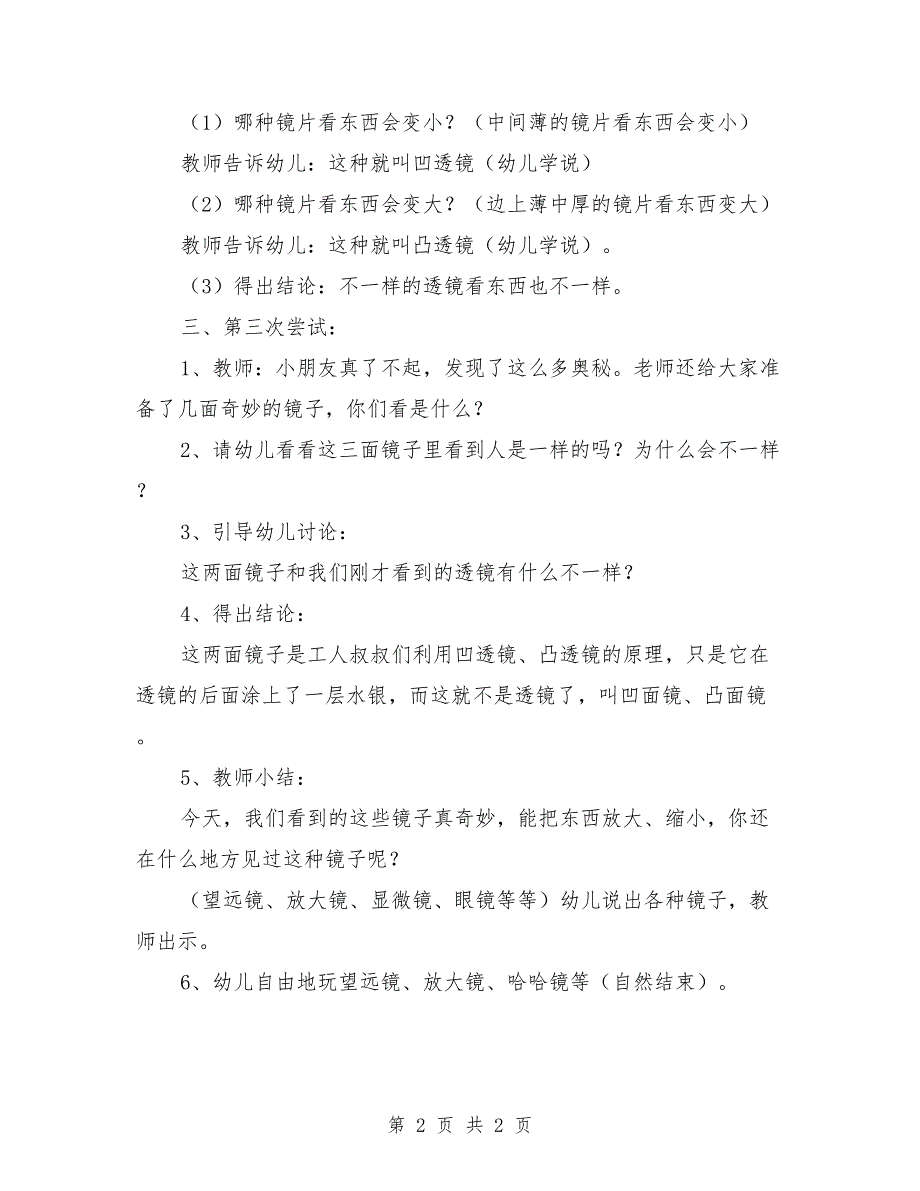 （1）哪种镜片看东西会变小？（中间薄的镜片看东西会变小）
教师告诉幼儿：这种就叫凹透镜（幼儿学说）
（2）哪种镜片看东西会变大？（边上薄中厚的镜片看东西变大）
教师告诉幼儿：这种就叫凸透镜（幼儿学说）。
（3）得出结论：不一样的透镜看东西也不一样。
三、第三次尝试：
1、教师：小朋友真了不起，发现了这么多奥秘。老师还给大家准
备了几面奇妙的镜子，你们看是什么？
2、请幼儿看看这三面镜子里看到人是一样的吗？为什么会不一样
？
3、引导幼儿讨论：
这两面镜子和我们刚才看到的透镜有什么不一样？
4、得出结论：
这两面镜子是工人叔叔们利用凹透镜、凸透镜的原理，只是它在
透镜的后面涂上了一层水银，而这就不是透镜了，叫凹面镜、凸面镜
。
5、教师小结：
今天，我们看到的这些镜子真奇妙，能把东西放大、缩小，你还
在什么地方见过这种镜子呢？
（望远镜、放大镜、显微镜、眼镜等等）幼儿说出各种镜子，教
师出示。
6、幼儿自由地玩望远镜、放大镜、哈哈镜等（自然结束）。
第 2 页 共 2 页